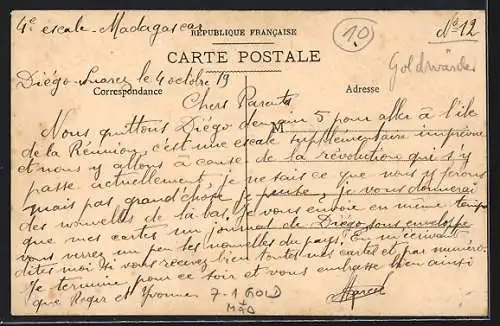 4e escale - Madagascar
Nº 12
10
RÉPUBLIQUE FRANÇAISE
CARTE POSTALE
Goldwäscher
Diégo-Suarez le 4 octobre 19
Correspondance
Adresse
Chers Parents
M
Nous quittons Diégo demain 5 pour aller à l'île
de la Réunion, c'est une escale supplémentaire imprévue
et nous y allons à cause de la révolution qui s'y
passe actuellement, je ne sais ce que nous y ferons
mais pas grand'chose je pense, je vous donnerai
des nouvelles de là-bas, je vous envoie en même temps
que mes cartes un journal de Diégo sous enveloppe
vous verrez un peu les nouvelles du pays. En m'écrivant
dites moi si vous recevez bien toutes mes cartes et par numéro.
Je termine pour ce soir et vous embrasse bien ainsi
que Roger et Yvonne
Marcel
7-1 GOLD
MAD